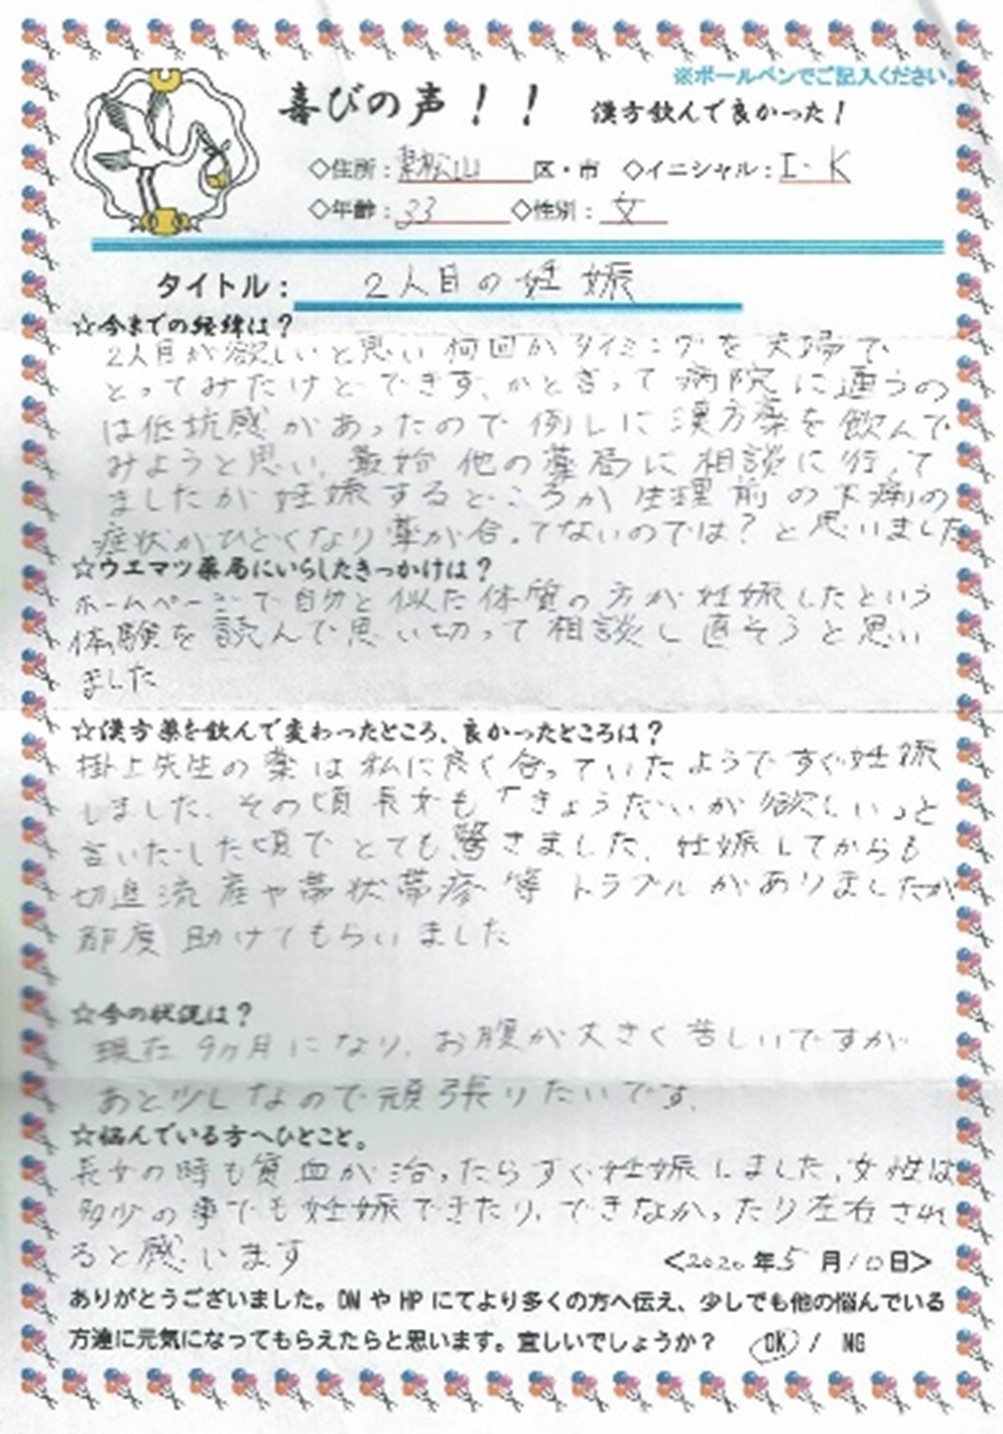 ※ボールペンでご記入ください。
喜びの声！！ 漢方飲んで良かった！
◇住所：東松山 区・市 ◇イニシャル：I・K
◇年齢：33 ◇性別：女
タイトル： 2人目の妊娠
☆今までの経緯は？
2人目が欲しいと思い何回かタイミングを夫婦で
とってみたけどできず、かと言って病院に通うの
は低抗感があったので例しに漢方薬を飲んで
みようと思い、最始他の薬局に相談に行って
ましたが妊娠するどころか生理前の下痢の
症状がひどくなり薬が合ってないのでは？と思いました
☆ウエマツ薬局にいらしたきっかけは？
ホームページで自分と似た体質の方が妊娠したという
体験を読んで思い切って相談し直そうと思い
ました
☆漢方薬を飲んで変わったところ、良かったところは？
掛上先生の薬は私に良く合っていたようですぐ妊娠
しました。その頃長女も「きょうだいが欲しい」と
言いだした頃でとても驚きました。妊娠してからも
切迫流産や帯状帯疹等トラブルがありましたが
都度助けてもらいました
☆今の状況は？
現在9ヶ月になり、お腹が大きく苦しいですが
あと少しなので頑張りたいです。
☆悩んでいる方へひとこと。
長女の時も貧血が治ったらすぐ妊娠しました。女性は
多少の事でも妊娠できたり、できなかったり左右され
ると感います
＜2020年5月10日＞
ありがとうございました。DMやHPにてより多くの方へ伝え、少しでも他の悩んでいる
方達に元気になってもらえたらと思います。宜しいでしょうか？ OK / NG